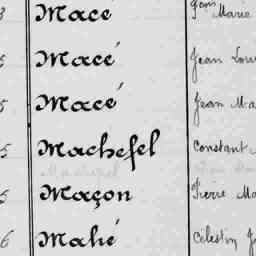 3 Macé Jean Marie
5 Macé Jean Lou
5 Macé Jean Ma
5 Machefel Constant
5 Maçon Pierre Ma
6 Mahé Célestin J